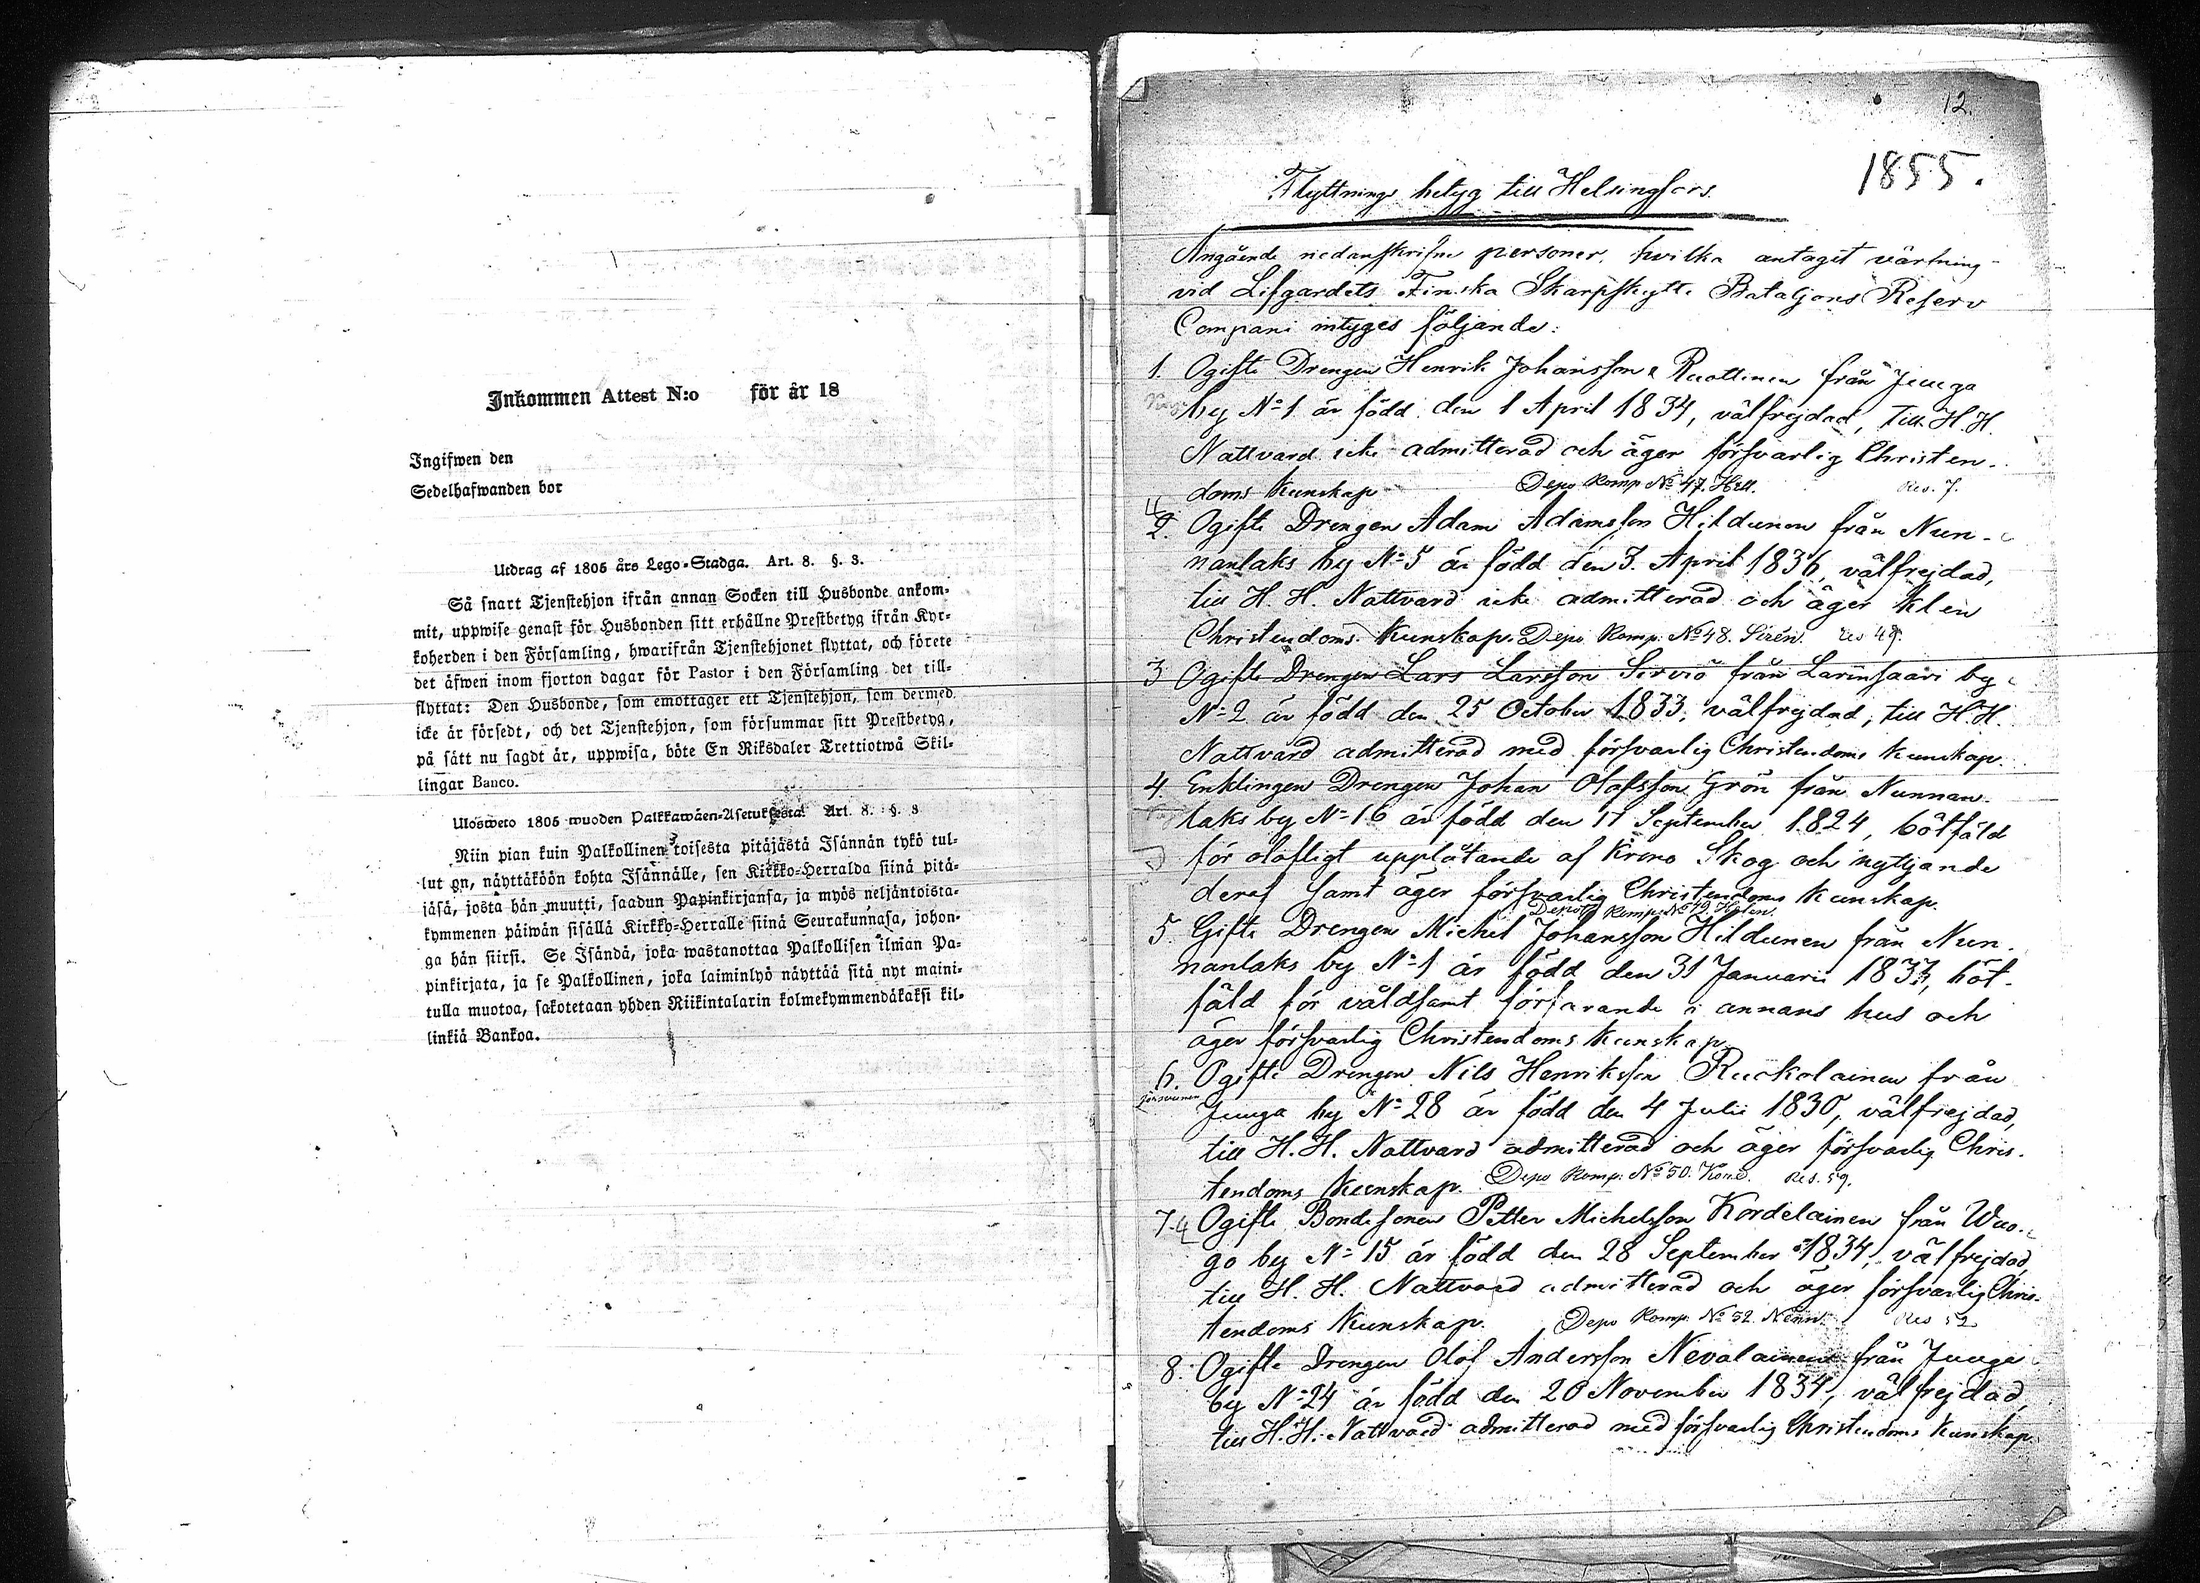 Inkommen Attest N:o för år 18
Ingifwen den
Sedelhafwanden bor
Utdrag af 1805 års Lego-Stadga. Art. 8. §. 3.
Så snart Tjenstehjon ifrån annan Socken till Husbonde ankom-
mit, uppwise genast för Husbonden sitt erhållne Prestbetyg ifrån Kyr-
koherden i den Församling, hwarifrån Tjenstehjonet flyttat, och förete
det äfwen inom fjorton dagar för Pastor i den Församling det till-
flyttat: Den Husbonde, som emottager ett Tjenstehjon, som dermed
icke är försedt, och det Tjenstehjon, som försummar sitt Prestbetyg,
på sätt nu sagdt är, uppwisa, böte En Riksdaler Trettiotwå Skil-
lingar Banco.
Ulosweto 1805 wuoden Palkkawäen-Asetuksesta. Art. 8. §. 3
Niin pian kuin Palkollinen toisesta pitäjästä Isännän tykö tul-
lut on, näyttäköön kohta Isännälle, sen Kirkko-Herralda siinä pitä-
jäsä, josta hän muutti, saadun Papinkirjansa, ja myös neljäntoista-
kymmenen päiwän sisällä Kirkko-Herralle siinä Seurakunnasa, johon-
ga hän siirsi. Se Isändä, joka wastanottaa Palkollisen ilman Pa-
pinkirjata, ja se Palkollinen, joka laiminlyö näyttää sitä nyt maini-
tulla muotoa, sakotetaan yhden Riikintalarin kolmekymmendäkaksi kil-
linkiä Bankoa.
12.
1855.
Flyttnings betyg till Helsingfors.
Angående nedanskrifne personer, hvilka antagit värfning
vid Lifgardets Finska Skarpskytte Bataljons Reserv
Compani intyges följande:
1. Ogifte Drengen Henrik Johansson Ruottinen från Juuga
by N:o 1 är född den 1 April 1834, välfrejdad, till H.H.
Nattvard icke admitterad och äger försvarlig Christen-
doms kunskap Depo Komp No 47. Hell. Res. 7.
2. Ogifte Drengen Adam Adamsson Hildunen från Nun-
nanlaks by N:o 5 är född den 3. April 1836, välfrejdad,
till H. H. Nattvard icke admitterad och äger klen
Christendoms kunskap. Depo Komp. No 48. Sirén. Res 49.
3 Ogifte Drengen Lars Larsson Serviö från Larinsaari by
N:o 2 är född den 25 October 1833, välfrejdad, till H.H.
Nattvard admitterad med försvarlig Christendoms kunskap.
4. Enklingen Drengen Johan Olofsson Grön från Nunnan-
laks by N:o 16 är född den 17 September 1824, bötfäld
för olofligt upplåtande af Krono Skog och nyttjande
deraf samt äger försvarlig Christendoms kunskap.
Depot Komp. No 49. Holm.
5. Gifte Drengen Michel Johansson Hildunen från Nun-
nanlaks by N:o 1 är född den 31 Januarii 1833, böt-
fäld för våldsamt förfarande i annans hus och
äger försvarlig Christendoms kunskap.
6. Ogifte Drengen Nils Henriksson Ruokolainen från
Juuga by N:o 28 är född den 4 Julii 1830, välfrejdad,
till H.H. Nattvard admitterad och äger försvarlig Chris-
tendoms kunskap. Depo Komp. No 50. Kond. Res. 59.
7. Ogifte Bondesonen Petter Michelsson Kordelainen från Wuo-
go by N:o 15 är född den 28 September 1834, välfrejdad
till H. H. Nattvard admitterad och äger försvarlig Chris-
tendoms kunskap. Depo Komp. No 52. Nenn. Res 52
8. Ogifte Drengen Olof Andersson Nevalainen från Juuga
by N:o 24 är född den 20 November 1834, välfrejdad,
till H.H. Nattvard admitterad med försvarlig Christendoms kunskap.